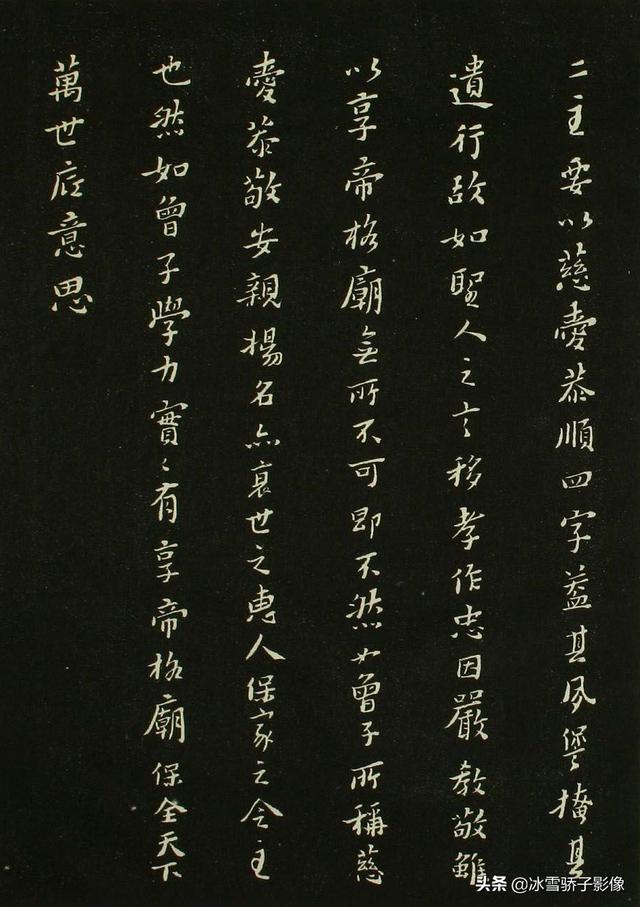 二主要以慈愛恭順四字蓋其夙諐掩其
遺行故如聖人之言移孝作忠因嚴教敬雖
以享帝格廟無所不可即不然如曾子所稱慈
愛恭敬安親揚名亦衰世之惠人保家之令主
也然如曾子學力實〻有享帝格廟保全天下
萬世底意思
头条 @冰雪骄子影像